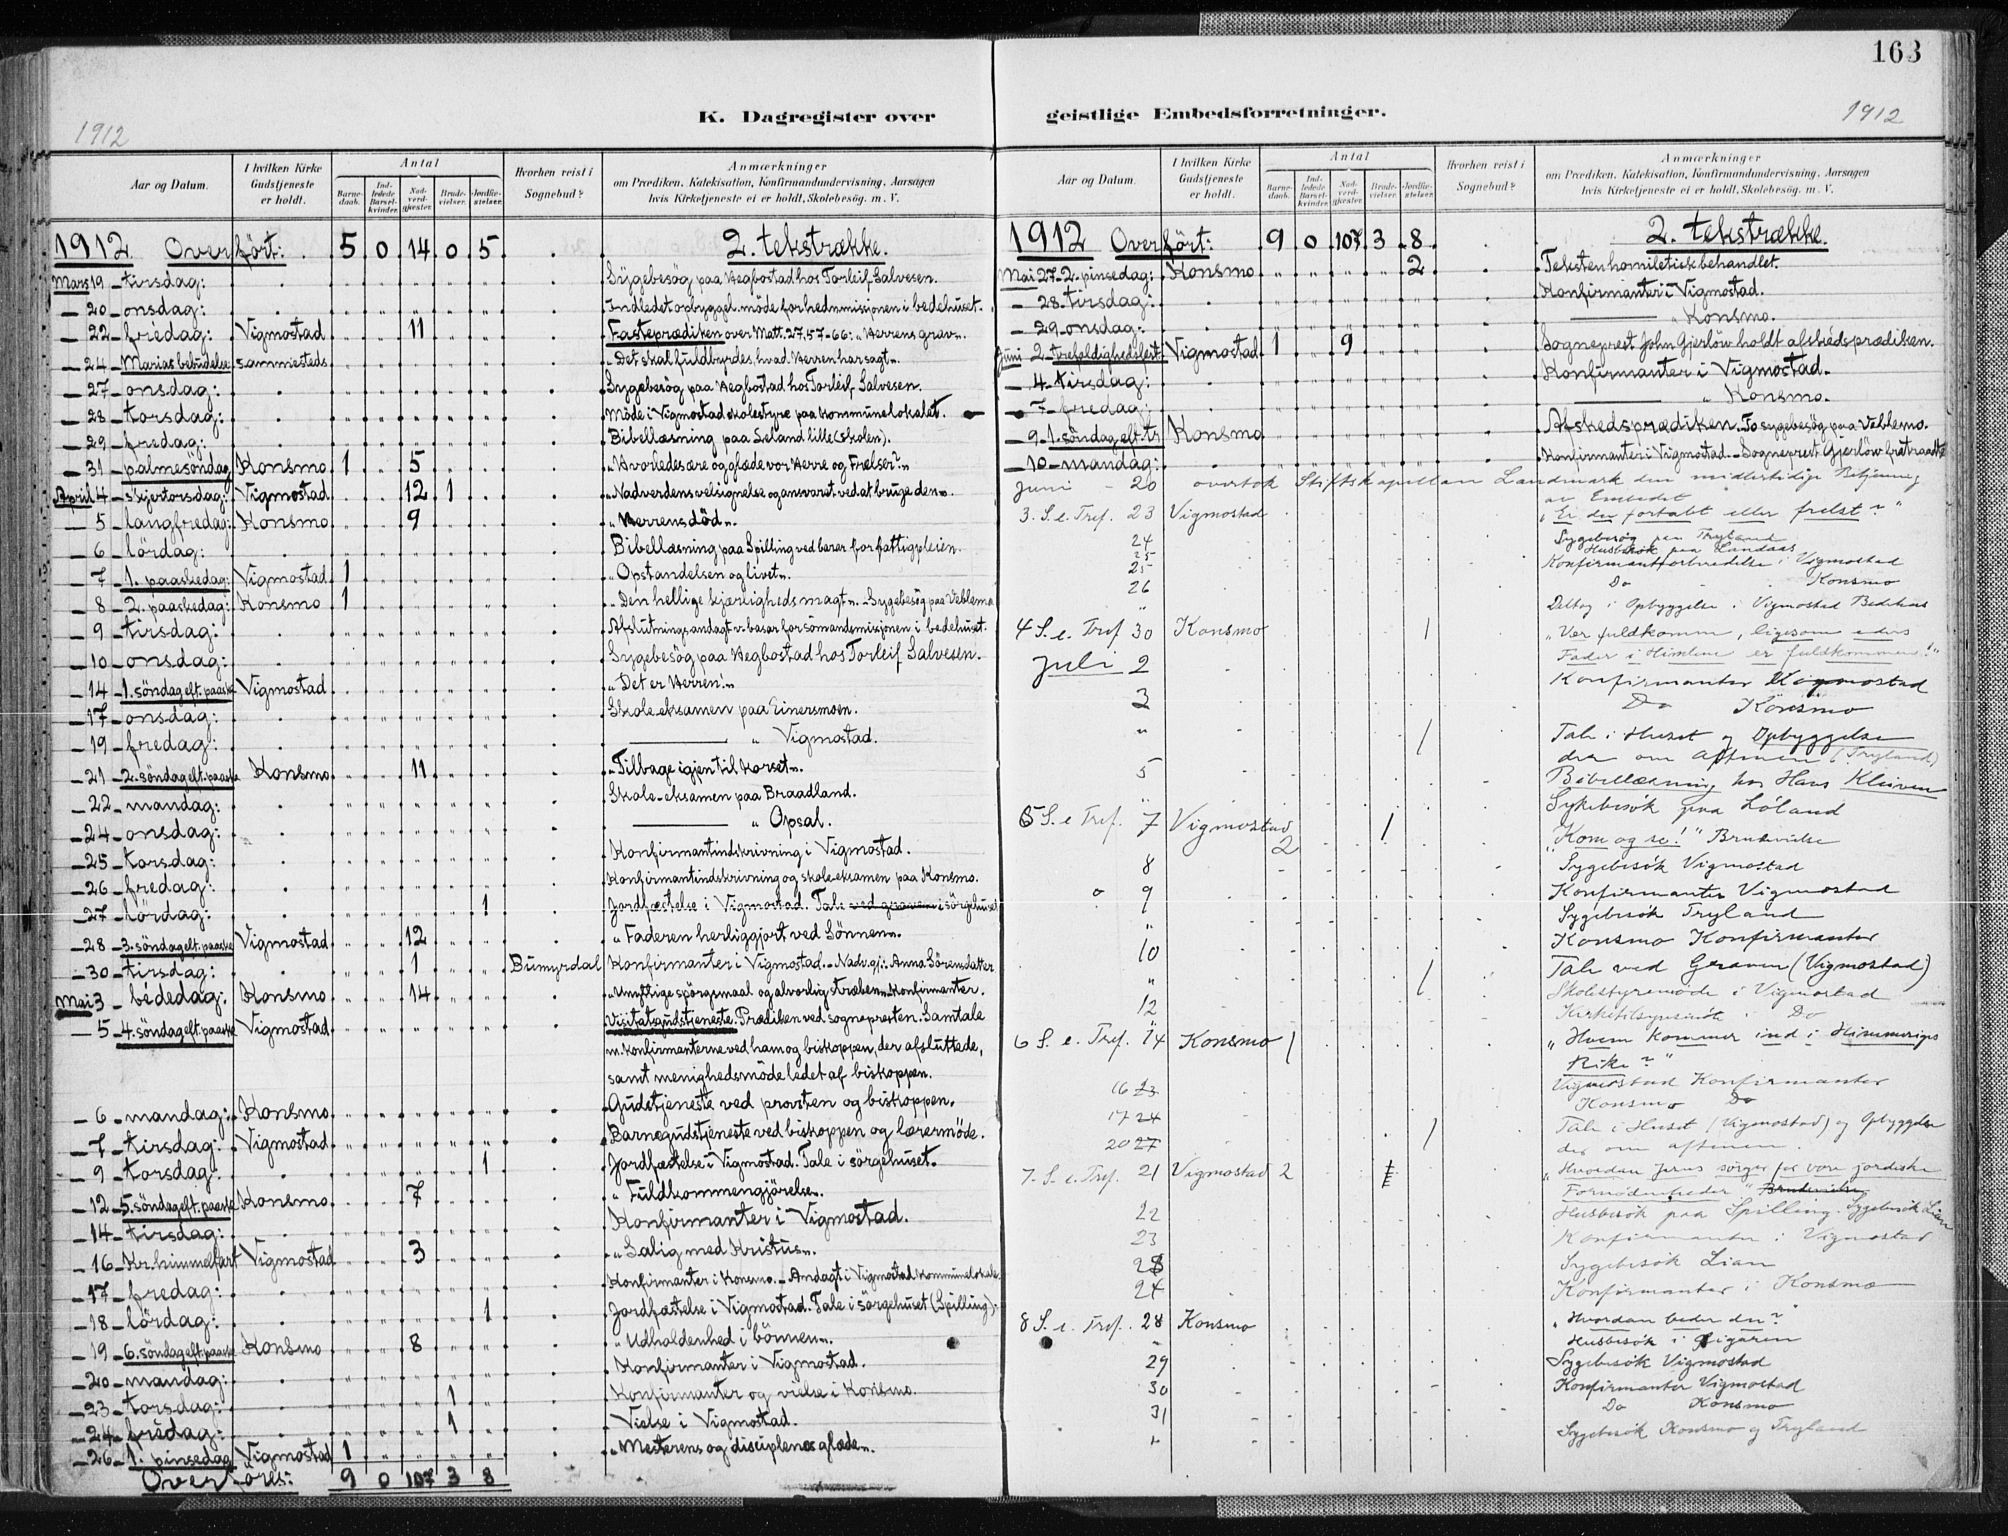 163
K. Dagregister over
geistlige Embedsforretninger.
1912
1912
Aar og Datum.
I hvilken Kirke Gudstjeneste er holdt.
Antal
Barnedaab.
Indledede Barselkvinder.
Nadverdgjester.
Brudevielser.
Jordfæstelser.
Hvorhen reist i Sognebud?
Anmærkninger
om Prædiken, Katekisation, Konfirmandundervisning, Aarsagen
hvis Kirketjeneste ei er holdt, Skolebesøg. m. V.
1912 Overført: 5 0 14 0 5 2. tekstrække.
Mars 19 - tirsdag: Sygebesøg paa Hegbostad hos Torleif Salvesen.
- 20 - onsdag: Indledet opbyggel. møde for hedn.missionen i bedehuset.
- 22 - fredag: Vigmostad 11 Fasteprædiken over Matt. 27,57-66: "Herrens grav".
- 24 - Marias bebudelse: sammesteds "Det skal fuldbyrdes, hvad Herren har sagt".
- 27 - onsdag: Sygebesøg paa Hegbostad hos Torleif Salvesen.
- 28 - torsdag: Møde i Vigmostad skolestyre paa kommunelokalet.
- 29 - fredag: Bibellæsning paa Seland lille (skolen).
- 31 - palmesøndag Konsmo 1 5 "Hvorledes ære og glæde vor Herre og Frelser?"
April 4 - skjertorsdag: Vigmostad 12 1 "Nadverdens velsignelse og ansvaret ved at bruge den".
- 5 - langfredag: Konsmo 9 "Herrens død".
- 6 - lørdag: Bibellæsning paa Spilling ved bører for fattigpleien.
- 7 - 1. paaskedag: Vigmostad 1 "Opstandelsen og livet".
- 8 - 2. paaskedag: Konsmo 1 "Den hellige kjærligheds magt". - Sygebesøg paa Veblemo
- 9 - tirsdag: Afslutningsandagt v. basar for sømandsmissionen i bedehuset.
- 10 - onsdag: Sygebesøg paa Hegbostad hos Torleif Salvesen.
- 14 - 1. søndag eft. paaske Vigmostad "Det er Herren!"
- 17 - onsdag: Skole-eksamen paa Einersmoen.
- 19 - fredag: " Vigmostad.
- 21 - 2. søndag eft. paaske Konsmo 11 "Tilbage igjen til korset".
- 22 - mandag: Skole-eksamen paa Braadland.
- 24 - onsdag: " Opsal.
- 25 - torsdag: Konfirmantindskrivning i Vigmostad.
- 26 - fredag: Konfirmantindskrivning og skole-eksamen paa Konsmo.
- 27 - lørdag: 1 Jordfæstelse i Vigmostad. Tale ved graven i sørgehuset
- 28 - 3. søndag eft. paaske Vigmostad 12 "Faderen herliggjort ved Sønnen".
- 30 - tirsdag: 1 Bumyrdal Konfirmanter i Vigmostad. - Nadv.gj.: Anna Sørensdatter
Mai 3 - bededag: Konsmo 14 "Unyttige spørgsmaal og alvorlig stræben". Konfirmanter.
- 5 - 4. søndag eft. paaske Vigmostad Visitatsgudstjeneste. Prædiken ved sognepresten. Samtale
m. konfirmanterne ved ham og biskoppen, der afsluttede,
samt menighedsmøde ledet af biskoppen.
- 6 - mandag: Konsmo Gudstjeneste ved provsten og biskoppen.
- 7 - tirsdag: Vigmostad Barnegudstjeneste ved biskoppen og lærermøde.
- 9 - torsdag: 1 Jordfæstelse i Vigmostad. Tale i sørgehuset.
- 12 - 5. søndag eft. paaske Konsmo 7 "Fuldkommengjørelse".
- 14 - tirsdag: Konfirmanter i Vigmostad.
- 16 - Kr. himmelfart Vigmostad 3 "Salig med Kristus".
- 17 - fredag: Konfirmanter i Konsmo. - Andagt i Vigmostad kommunelokale.
- 18 - lørdag: 1 Jordfæstelse i Vigmostad. Tale i sørgehuset (Spilling).
- 19 - 6. søndag eft. paaske Konsmo 8 "Udholdenhed i bønnen".
- 20 - mandag: Konfirmanter i Vigmostad.
- 23 - torsdag: 1 Konfirmanter og vielse i Konsmo.
- 24 - fredag: 1 Vielse i Vigmostad.
- 26 - 1. pinsedag Vigmostad 1 "Mesterens og disciplenes glæde".
Overføres: 9 0 107 3 8
Aar og Datum.
I hvilken Kirke Gudstjeneste er holdt.
Antal
Barnedaab.
Indledede Barselkvinder.
Nadverdgjester.
Brudevielser.
Jordfæstelser.
Hvorhen reist i Sognebud?
Anmærkninger
om Prædiken, Katekisation, Konfirmandundervisning, Aarsagen
hvis Kirketjeneste ei er holdt, Skolebesøg. m. V.
1912 Overført: 9 0 107 3 8 2. tekstrække.
Mai 27 - 2. pinsedag: Konsmo 2 Teksten homiletisk behandlet.
- 28. tirsdag: Konfirmanter i Vigmostad.
- 29. onsdag: " Konsmo.
Juni 2 - trefoldighedsfest Vigmostad 1 9 Sogneprest John Gjerløw holdt afskedsprædiken.
- 4. tirsdag: Konfirmanter i Vigmostad.
- 7 - fredag: " Konsmo.
- 9 - 1. søndag eft. tr. Konsmo Afskedsprædiken. To sygebesøg paa Veblemo.
- 10 - mandag: Konfirmanter i Vigmostad. - Sogneprest Gjerløw fratraadte
Juni - 20 overtok Stiftskapellan Landmark den midlertidige Betjening
av Embedet
3. S. e. Tref. 23 Vigmostad "Er du fortabt eller frelst?"
24 Sygebesøg paa Tryland
25 Husbesøk paa Landaas
25 Konfirmantforberedelse i Vigmostad
26 Do Konsmo
" Deltog i Opbyggelse i Vigmostad Bedehus
4 S. e. Tref 30 Konsmo 1 "Vær fuldkomne, ligesom eders
Fader i Himlene er fuldkommen!"
Juli 2 Konfirmanter Vigmostad
3 Do Konsmo
" 1 Tale i Huset og Opbyggelse
der om Aftenen (Tryland)
5 Bibellæsning hos Hans Kleiven
" Sykebesøk paa Løland
5 S. e Tref. 7 Vigmostad 2 1 "Kom og se!" Brudevielse
8 Sygebesøk Vigmostad
9 Konfirmanter Vigmostad
" Sygebesøk Tryland
10 Konsmo Konfirmanter
" 1 Tale ved Graven (Vigmostad)
12 Skolestyremøde i Vigmostad
" Do
6 S. e. Tref. 14 Konsmo 1 "Hvem kommer ind i Himmeriges
Rike?"
16 23 Vigmostad Konfirmanter
17 24 Konsmo Do
20 27 1 Tale i Huset (Vigmostad) og Opbyggelse
der om aftenen.
7. S. e. Tref. 21 Vigmostad 2 "Hvordan Jesus sørger for vore jordiske
Fornødenheder" Brudevielse
22 Husbesøk paa Spilling. Sygebesøk Lian
23 Konfirmanter i Vigmostad
23 Sygebesøk Lian
24 Konfirmanter i Konsmo
8 S. e. Tref. 28 Konsmo "Hvordan beder du?"
" Husbesøk i
29 Sygebesøk Vigmostad
30 Konfirmanter Vigmostad
31 Do Konsmo
" Sygebesøk Konsmo og Tryland